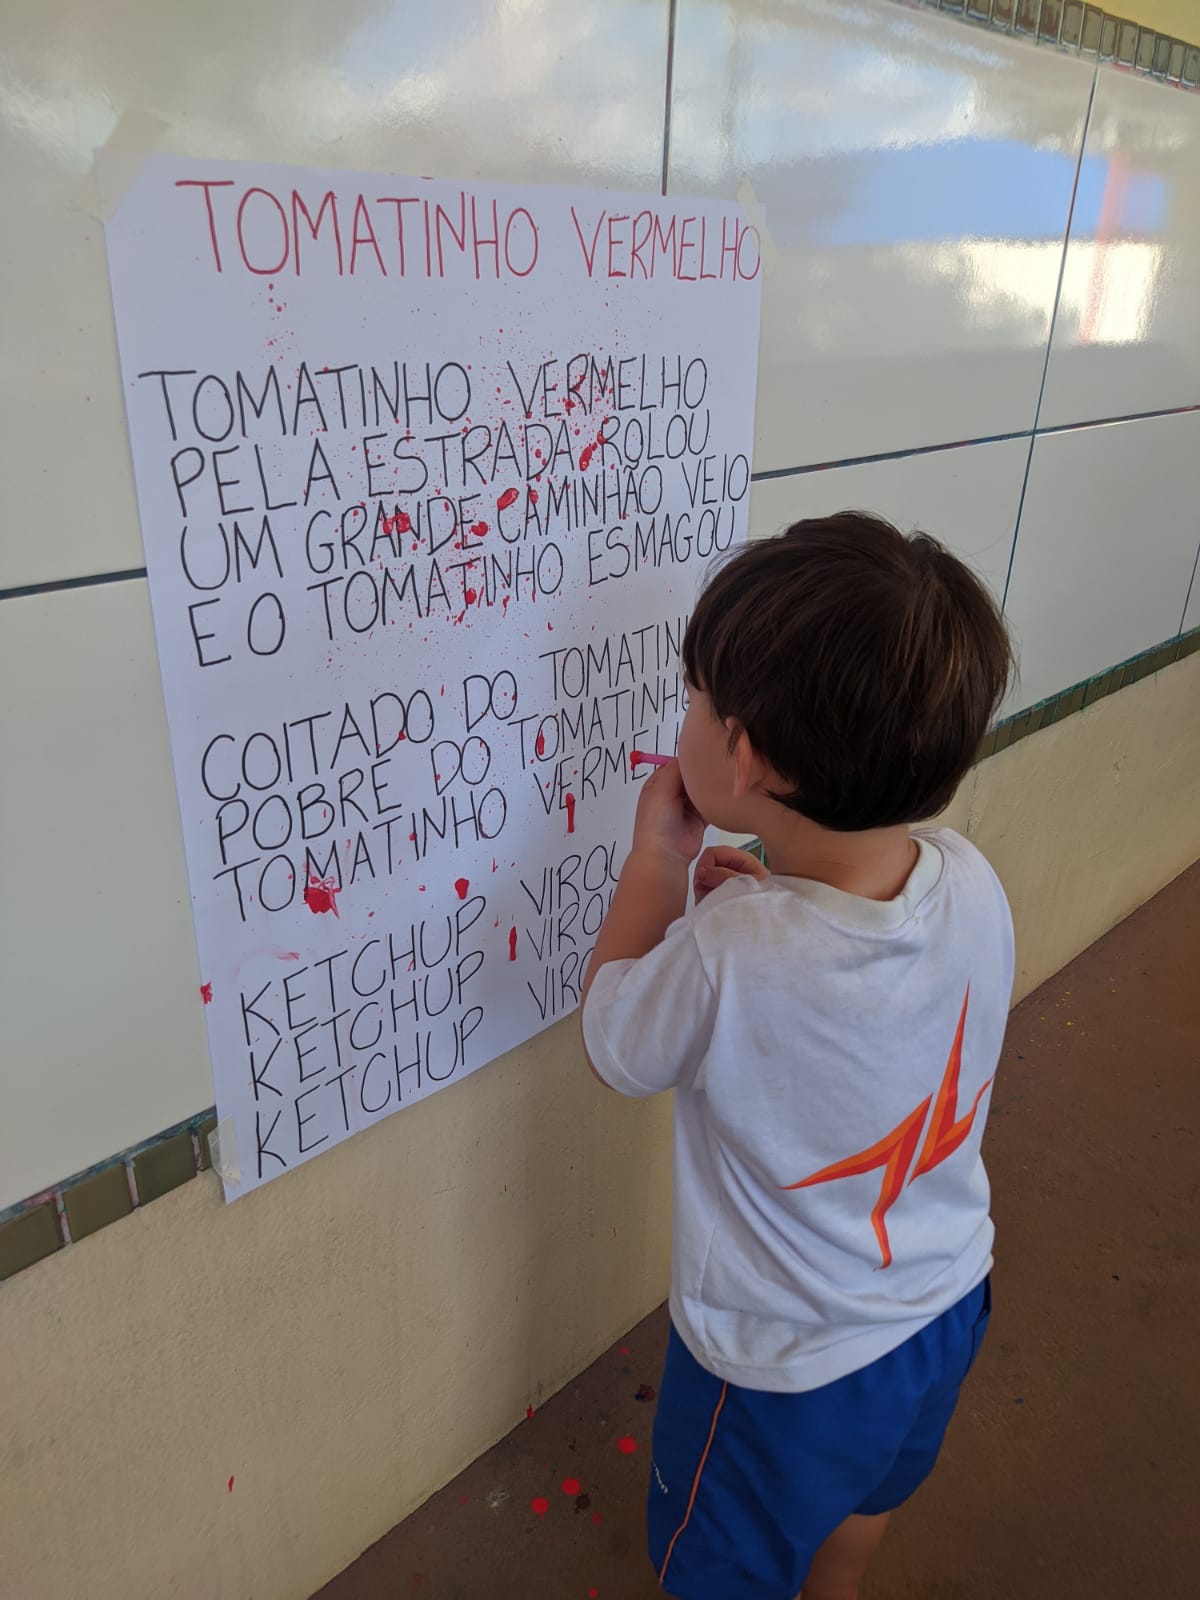 TOMATINHO VERMELHO
TOMATINHO VERMELHO
PELA ESTRADA ROLOU
UM GRANDE CAMINHÃO VEIO
E O TOMATINHO ESMAGOU
COITADO DO
POBRE DO TOMATINHO
TOMATINHO
KETCHUP
KETCHUP
KETCHUP